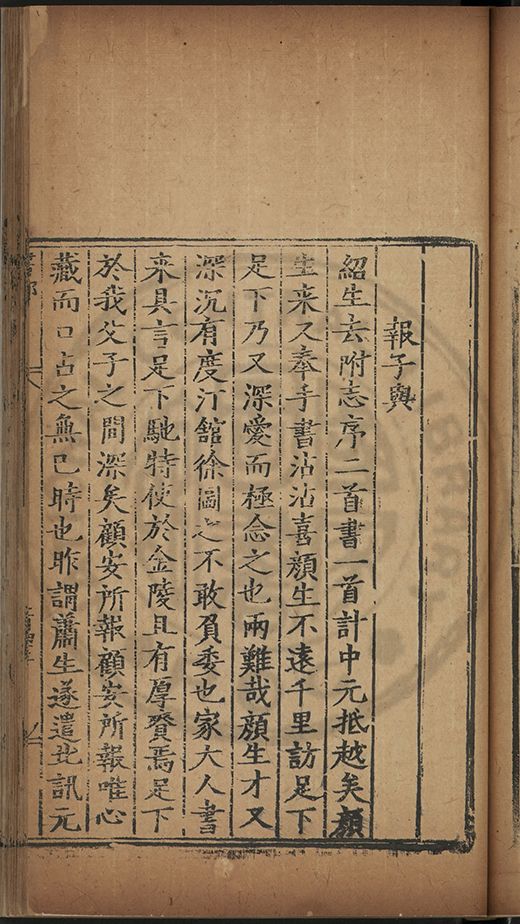 報子與
紹生去附志序二首書一首計中元抵越矣顏
生来又奉手書沾沾喜顏生不遠千里訪足下
足下乃又深愛而極念之也兩難哉顏生才又
深沉有度汀舘徐圖之不敢負委也家大人書
来具言足下馳特使於金陵且有厚賚焉足下
於我父子之間深矣顧安所報顧安所報唯心
藏而口占之無已時也昨謂蕭生遂遣此訊元